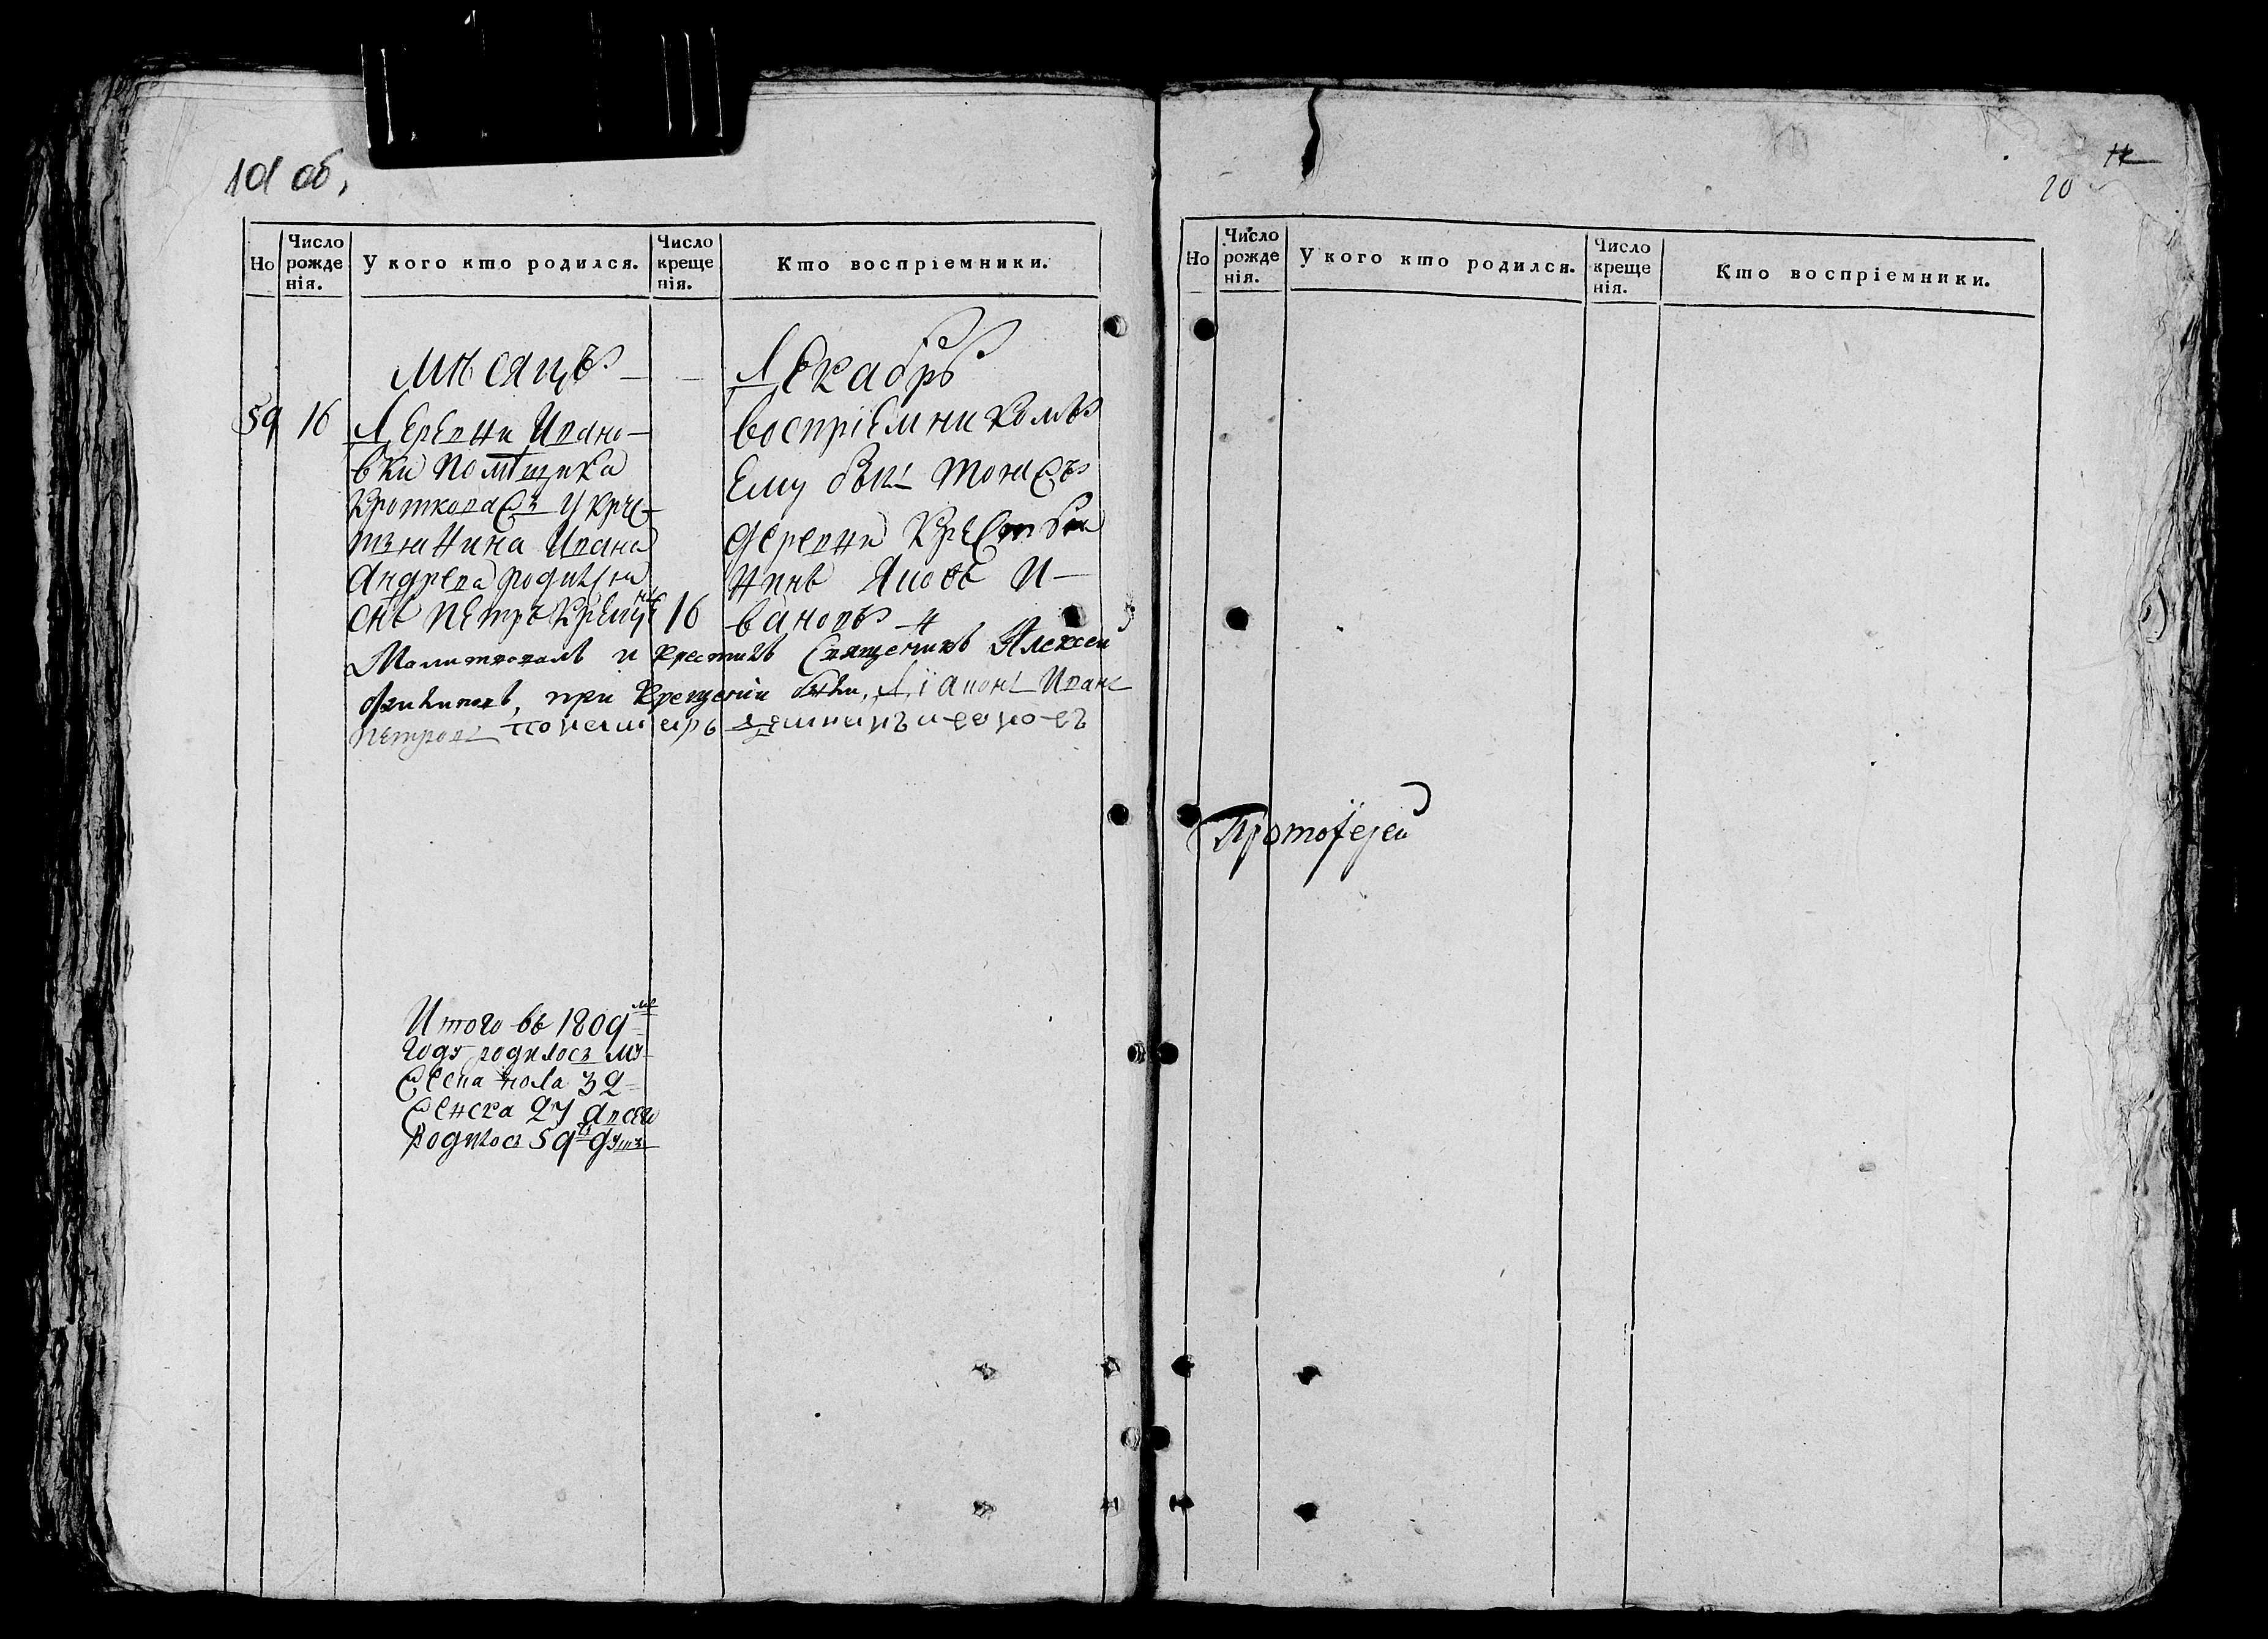 19 об.
Но
Число рожде нія.
У кого кто родился.
Число креще нія.
Кто воспріемники.
мѣсяцъ
Декабрь
59 16 Деревни Ивано-
вки помѣщика
Кроткова у крес-
тьянина Ивана
Андрева родился
снъ Петръ крещенъ 16
воспріемникомъ
ему былъ тоиже
деревни крестья
нинъ Яковъ И-
вановъ
Малитвовалъ и крестилъ Священикъ Алексеи
Филиповъ, при крещеніи были, Діаконъ Иванъ
Петровъ пономарь
Итого въ 1809мъ
году родилось му-
жеска пола 32
женска 27 а всего
родилось 59 душъ
20
Но
Число рожде нія.
У кого кто родился.
Число креще нія.
Кто воспріемники.
Протоіереи